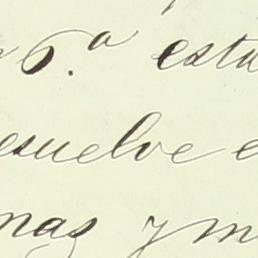 6.ª esta
esuelve e
mas y m